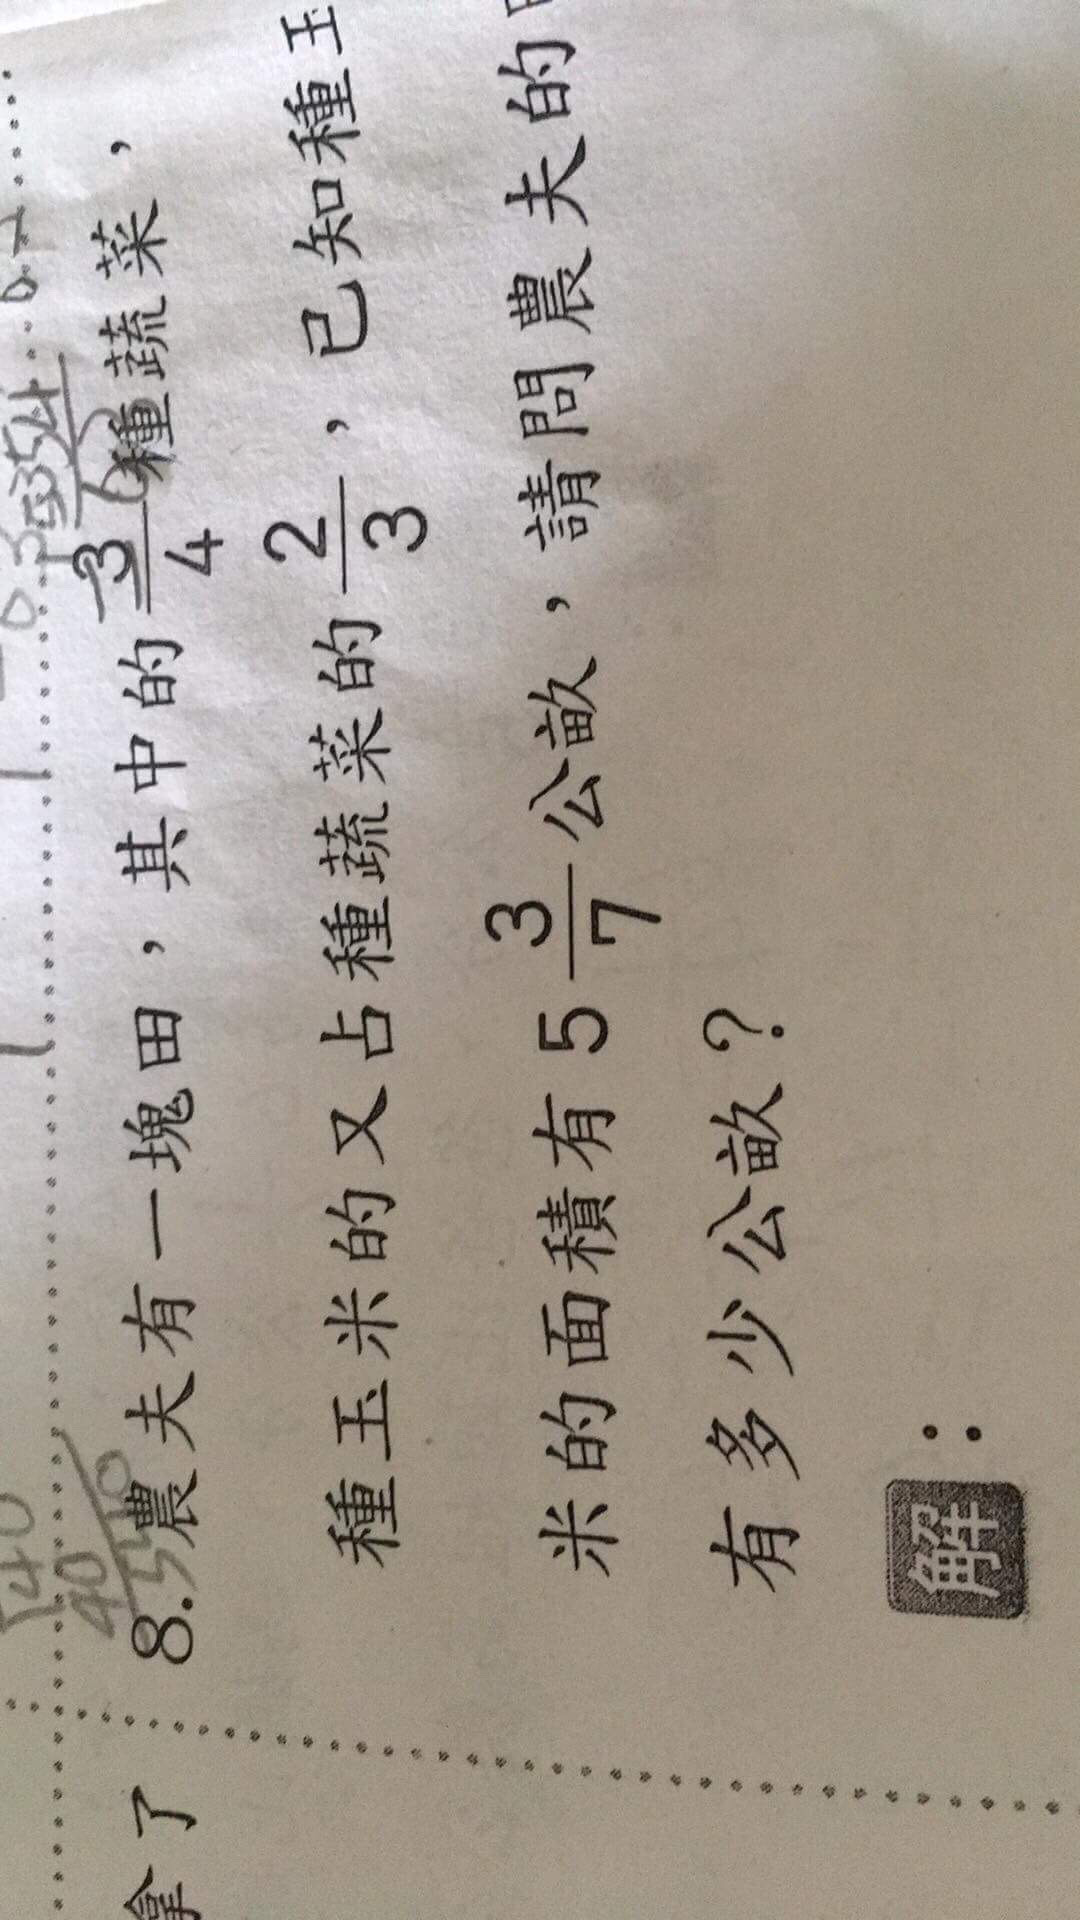 8.農夫有一塊田，其中的3/4種蔬菜，
種玉米的又占種蔬菜的2/3，已知種玉
米的面積有5 3/7公畝，請問農夫的
有多少公畝？
解：
拿了